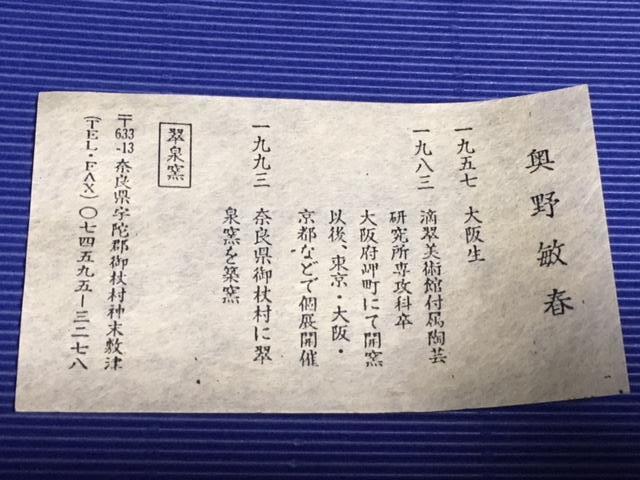 奥野敏春
一九五七 大阪生
一九八三 滴翠美術館付属陶芸
研究所専攻科卒
大阪府岬町にて開窯
以後、東京・大阪・
京都などで個展開催
一九九三 奈良県御杖村に翠
泉窯を築窯
翠泉窯
〒633-13 奈良県宇陀郡御杖村神末敷津
(TEL・FAX)〇七四五九五ー三二七八